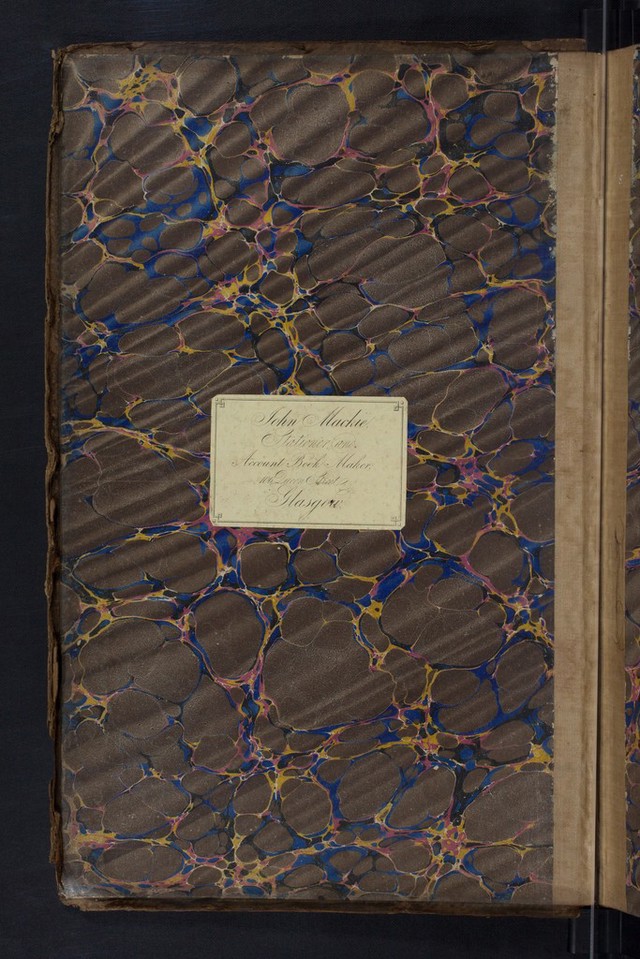 John Mackie,
Stationer and
Account Book Maker,
Queen Street
Glasgow